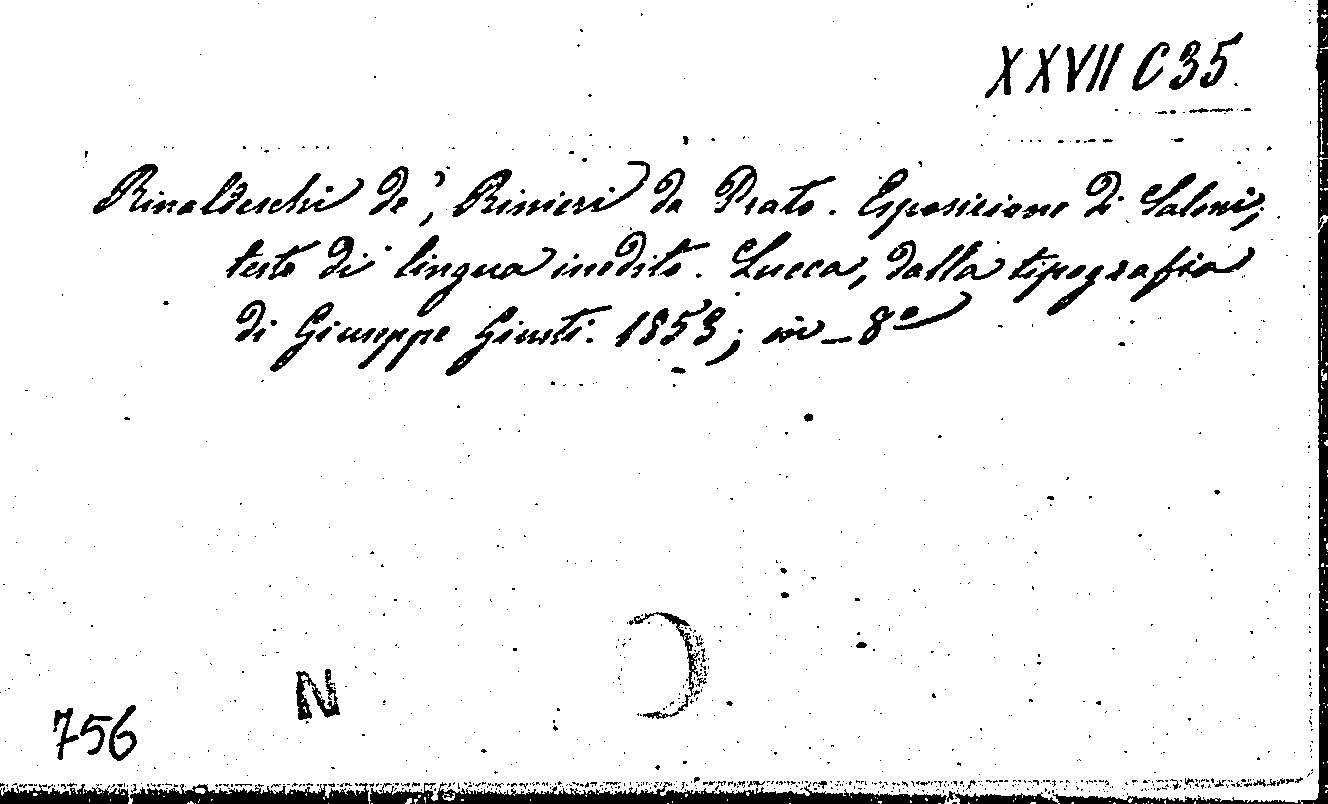 XXVII C 35
Rinaldeschi de', Rinieri da Prato. Esposizione di Salmi,
testo di lingua inedito. Lucca, dalla tipografia
di Giuseppe Giusti. 1853; in-8º
N
756